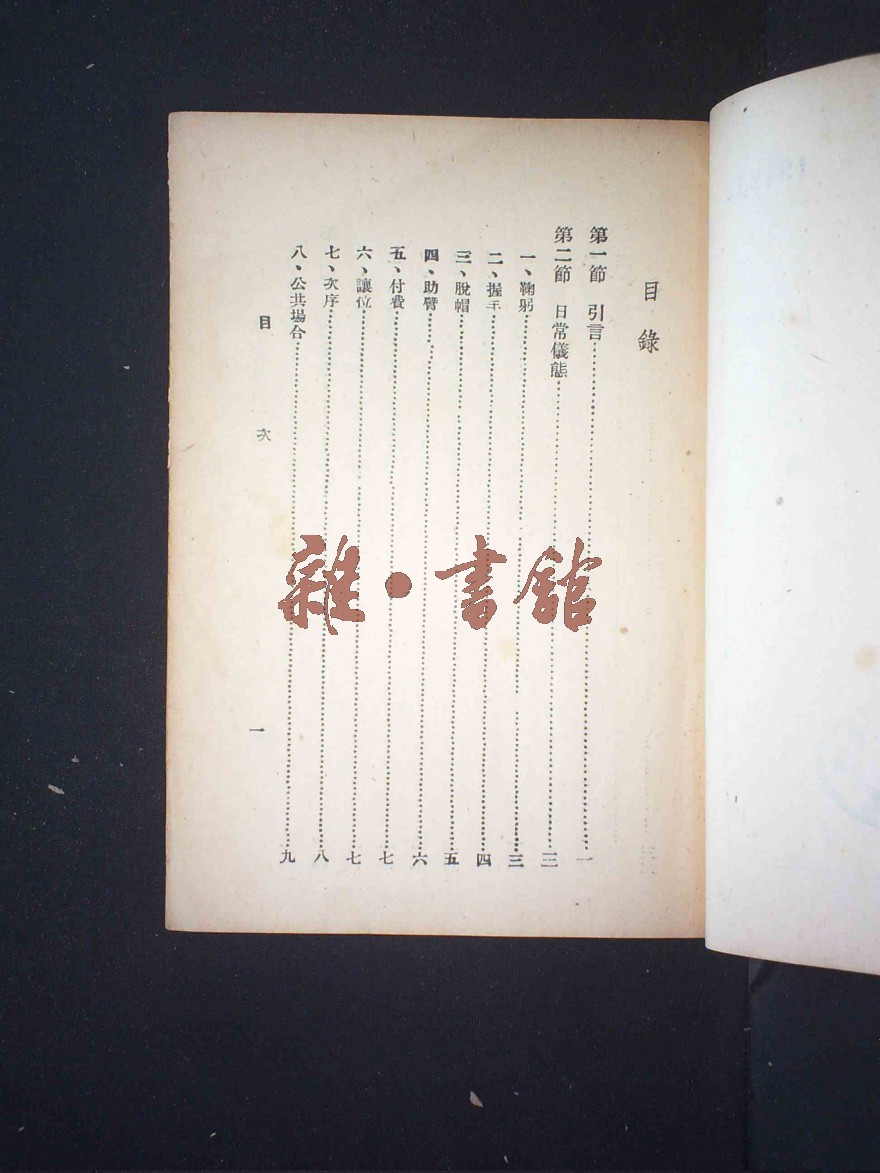 目錄
第一節 引言……一
第二節 日常儀態……三
一、鞠躬……三
二、握手……四
三、脫帽……五
四、助臂……六
五、付費……七
六、讓位……七
七、次序……八
八、公共場合……九
目 次 一
雜·書館